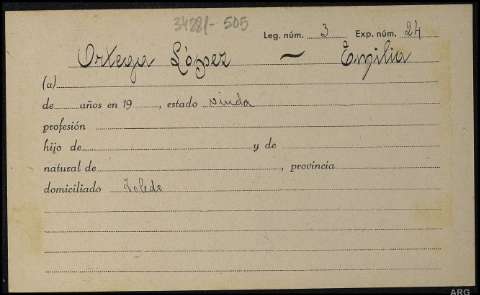 34281-505
Leg. núm. 3 Exp. núm. 24
Ortega López ~ Emilia
(a)
de años en 19 , estado viuda
profesión
hijo de y de
natural de , provincia
domiciliado Toledo
ARG